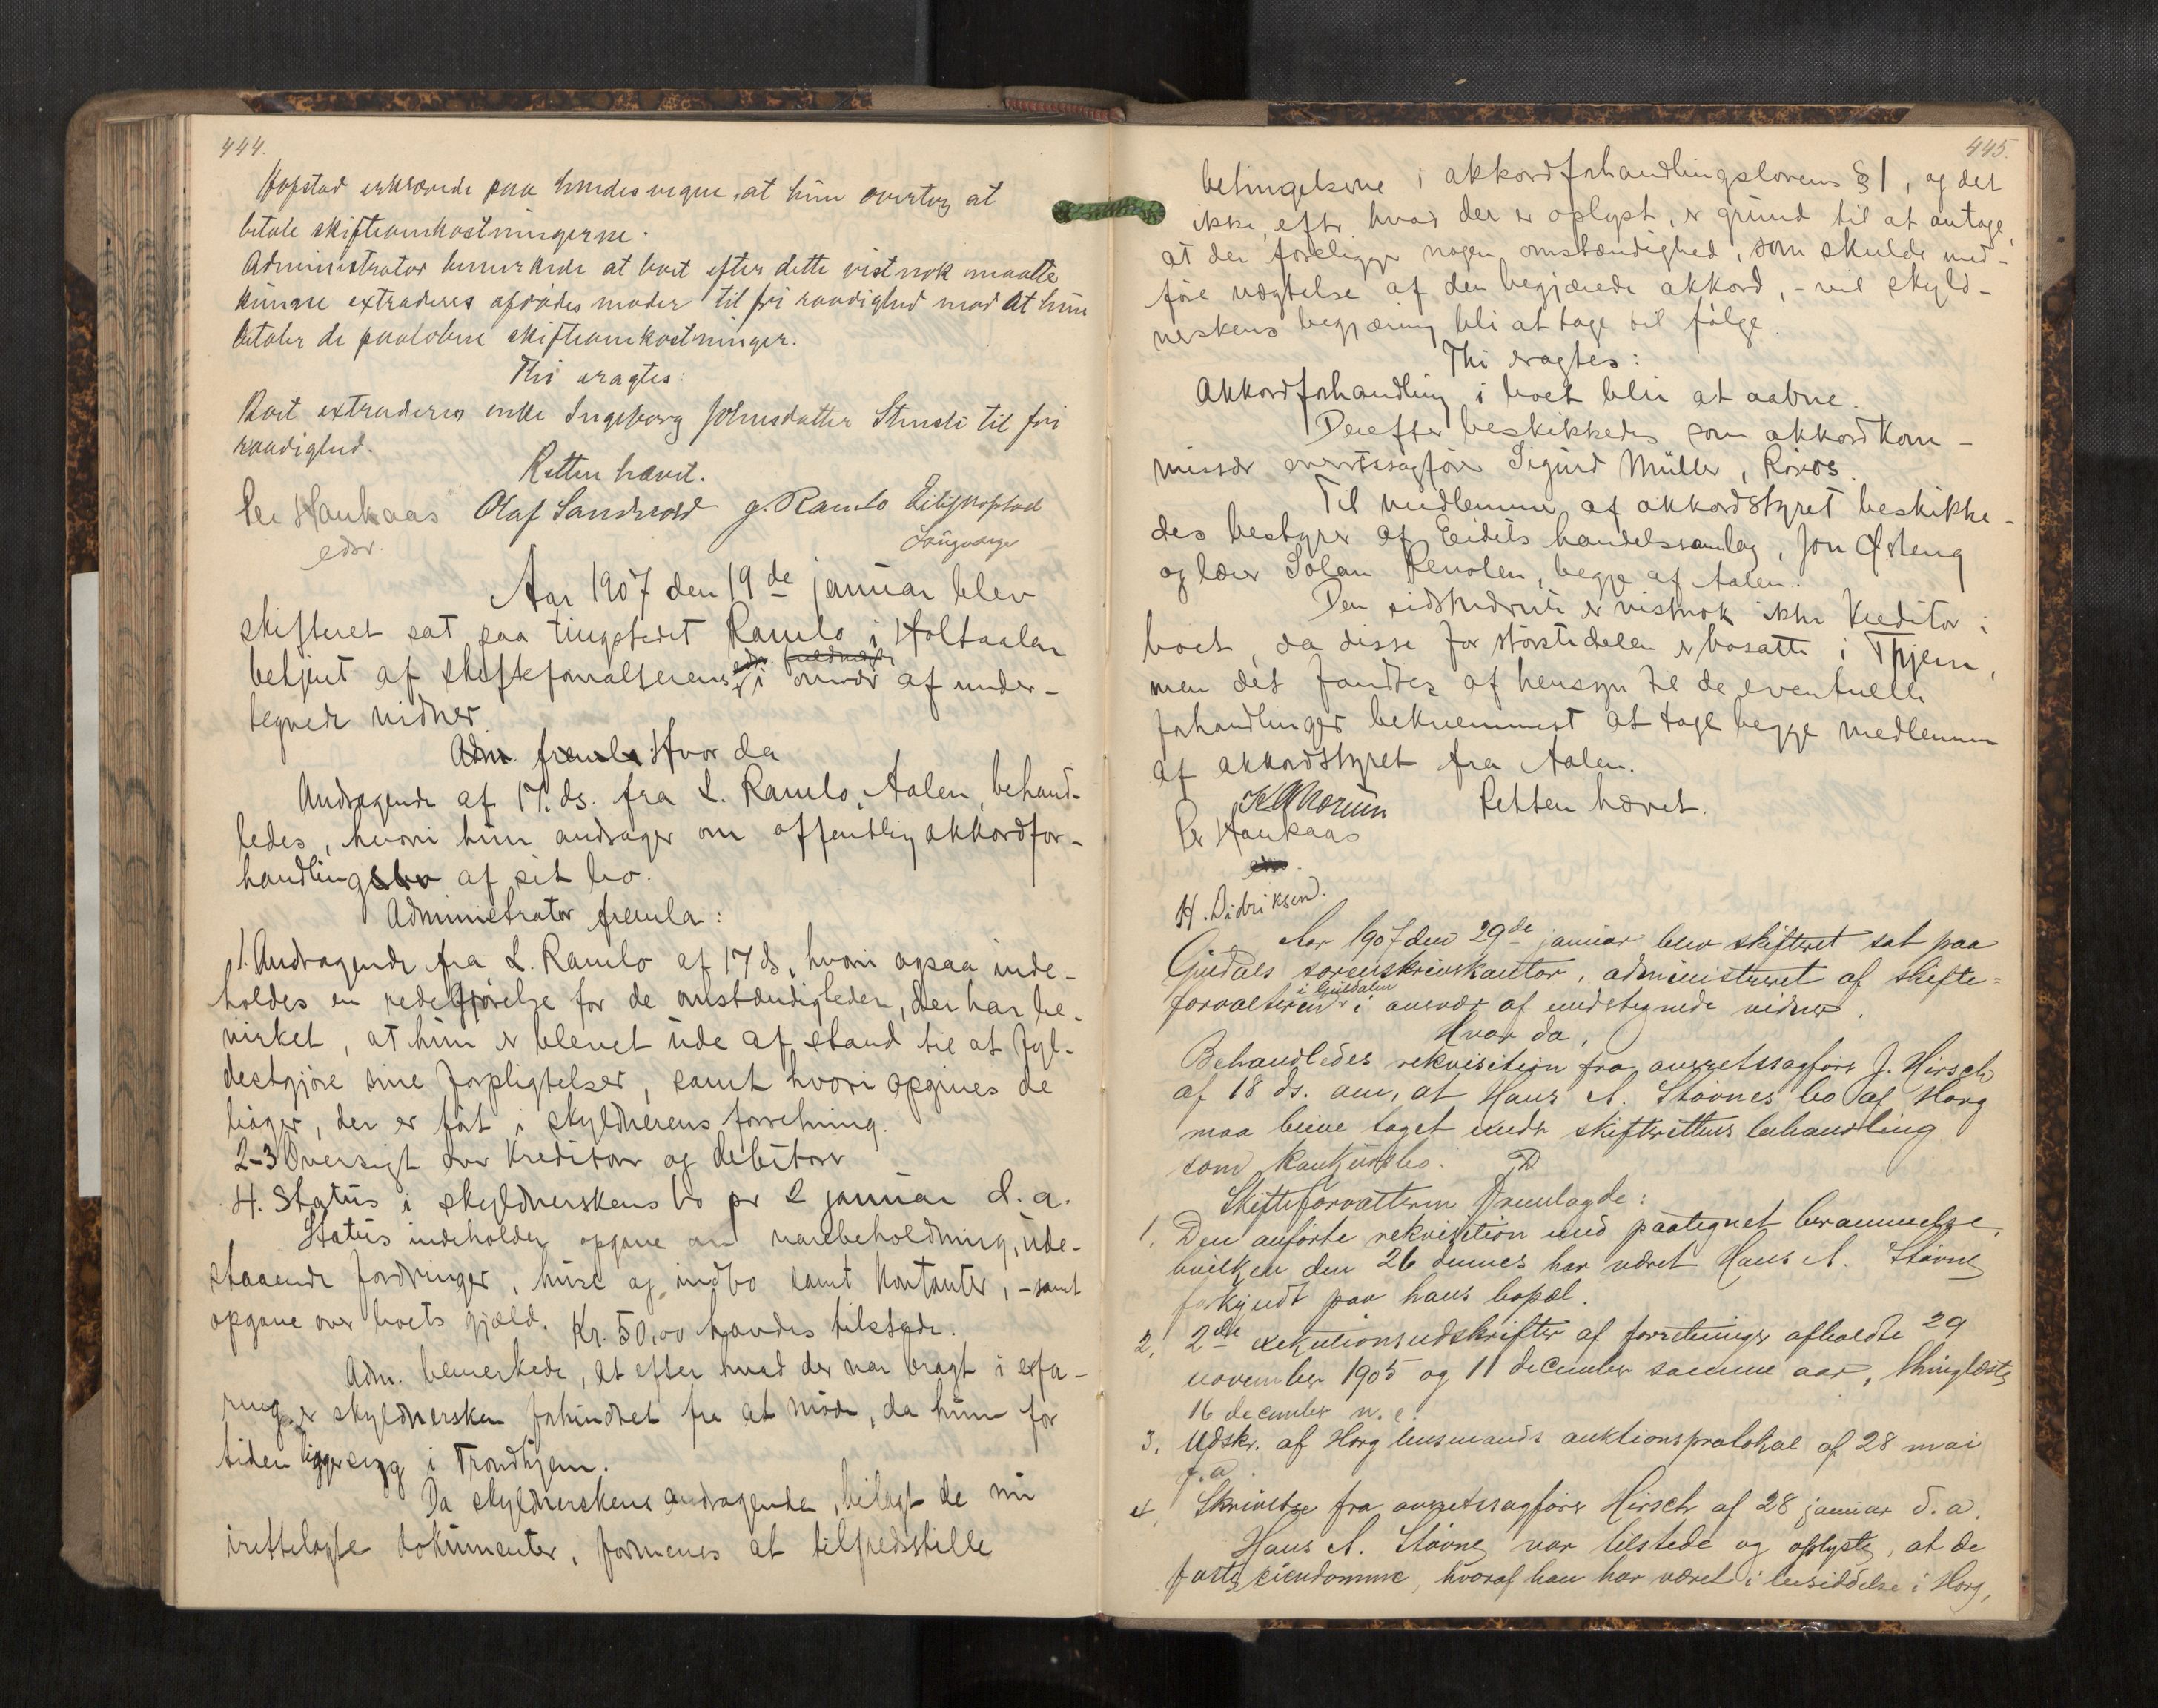 444.
Hofstad erklærede paa hendes vegne, at hun overtog at
betale skifteomkostningerne.
Administrator bemerkede at boet efter dette vistnok maatte
kunne extraderes afdødes moder til fri raadighed mod at hun
betaler de paaløbne skifteomkostninger.
Thi eragtes:
Boet extraderes enke Ingeborg Johnsdatter til fri
raadighed.
Retten hævet.
Per Haukaas Olaf Sandvold G. Ramlo
edsv.
Aar 1907 den 19de januar blev
skifteret sat paa tingstedet Ramlo i Holtaalen
betjent af skifteforvalterens edsv. fuldmægt i overvær af under-
tegnede vidner
Adm. fremla: Hvor da
Andragende af 17. ds. fra L. Ramlo, Aalen, behand-
ledes, hvori hun andrager om offentlig akkordfor-
handling af sit bo.
Administrator fremla:
1. Andragende fra L. Ramlo af 17 ds, hvori ogsaa inde-
holdes en redegjørelse for de omstændigheder, der har be-
virket, at hun er blevet ude af stand til at fyl-
destgjøre sine forpligtelser, samt hvori opgives de
bøger, der er ført i skyldnerens forretning.
2-3 Oversigt over kreditorer og debitorer
4. Status i skyldnerskens bo pr 2 januar d.a.
Status indeholder opgave om varebeholdning, ude-
staaende fordringer, huse og indbo samt kontanter, - samt
opgave over boets gjæld. Kr. 50,00 havdes tilstede.
Adm. bemerkede, at efter hvad der var bragt i erfa-
ring, er skyldnersken forhindret fra at møde, da hun for
tiden ligger syg i Trondhjem.
Da skyldnerskens andragende, bilagt de nu
irettelagte dokumenter, formenes at tilfredsstille
445.
betingelserne i akkordforhandlingslovens § 1, og det
ikke, efter hvad der er oplyst, er grund til at antage,
at der foreligger nogen omstændighed, som skulde med-
føre nægtelse af den begjærede akkord, - vil skyld-
nerskens begjæring bli at tage til følge.
Thi eragtes:
Akkordforhandling i boet blir at aabne.
Derefter beskikkedes som akkordkom-
missær overretssagfører Sigurd Müller, Røros.
Til medlemmer af akkordstyret beskikke-
des bestyrer af Eidets handelssamlag, Jon Østeng
og lærer Renolen, begge af Aalen.
Den sidstnævnte er vistnok ikke kreditor i
boet, da disse for størstedelen er bosatte i Thjem,
men det fandtes af hensyn til de eventuelle
forhandlinger bekvemmest at tage begge medlemmer
af akkordstyret fra Aalen.
Retten hævet.
Per Haukaas
edsv.
H. Didriksen.
Aar 1907 den 29de januar blev skifteret sat paa
Guldals sorenskriverkontor, administreret af skifte-
forvalteren i Guldalen i overvær af undertegnede vidner.
Hvor da,
Behandledes rekvisition fra overretssagfører J. Hirsch
af 18 ds. om, at Hans A. Støvnes bo af Horg
maa blive taget under skifterettens behandling
som konkursbo.
Skifteforvalteren fremlagde:
1. Den anførte rekvisition med paategnet berammelse,
hvilken den 26 dennes har været Hans A. Støvne
forkyndt paa hans bopæl.
2. 2de exekutionsudskrifter af forretninger afholdte 29
november 1905 og 11 december samme aar, thinglæste
16 december n. e.
3. Udskr. af Horg lensmands auktionsprotokol af 28 mai
f.a.
4. Skrivelse fra overretssagfører Hirsch af 28 januar d.a.
Hans A. Støvne var tilstede og oplyste, at de
faste eiendomme, hvoraf han har været i besiddelse i Horg,